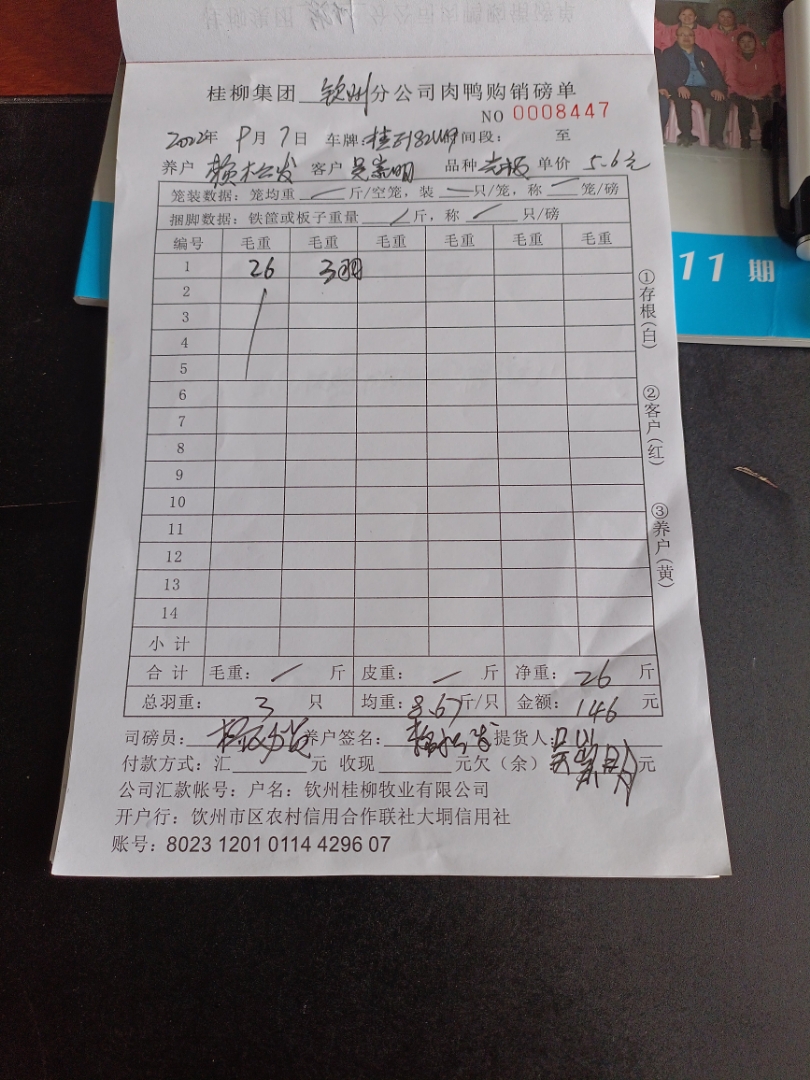 桂柳集团 钦州 分公司肉鸭购销磅单
NO 0008447
2022年 9月 7日 车牌: 时间段: 至
养户 赖松发 客户 吴崇明 品种 单价 5.6元
笼装数据: 笼均重 / 斤/空笼, 装 一 只/笼, 称 一 笼/磅
捆脚数据: 铁筐或板子重量 / 斤, 称 / 只/磅
编号 毛重 毛重 毛重 毛重 毛重 毛重
1 26 3羽
2
3
4
5
6
7
8
9
10
11
12
13
14
小计
合计 毛重: / 斤 皮重: 一 斤 净重: 26 斤
总羽重: 3 只 均重: 8.67斤/只 金额: 146 元
司磅员: 养户签名: 赖松发 提货人: 吴崇明
付款方式: 汇 元 收现 元欠(余) 元
公司汇款帐号: 户名: 钦州桂柳牧业有限公司
开户行: 钦州市区农村信用合作联社大垌信用社
账号: 8023 1201 0114 4296 07
①存根(白)
②客户(红)
③养户(黄)
11 期